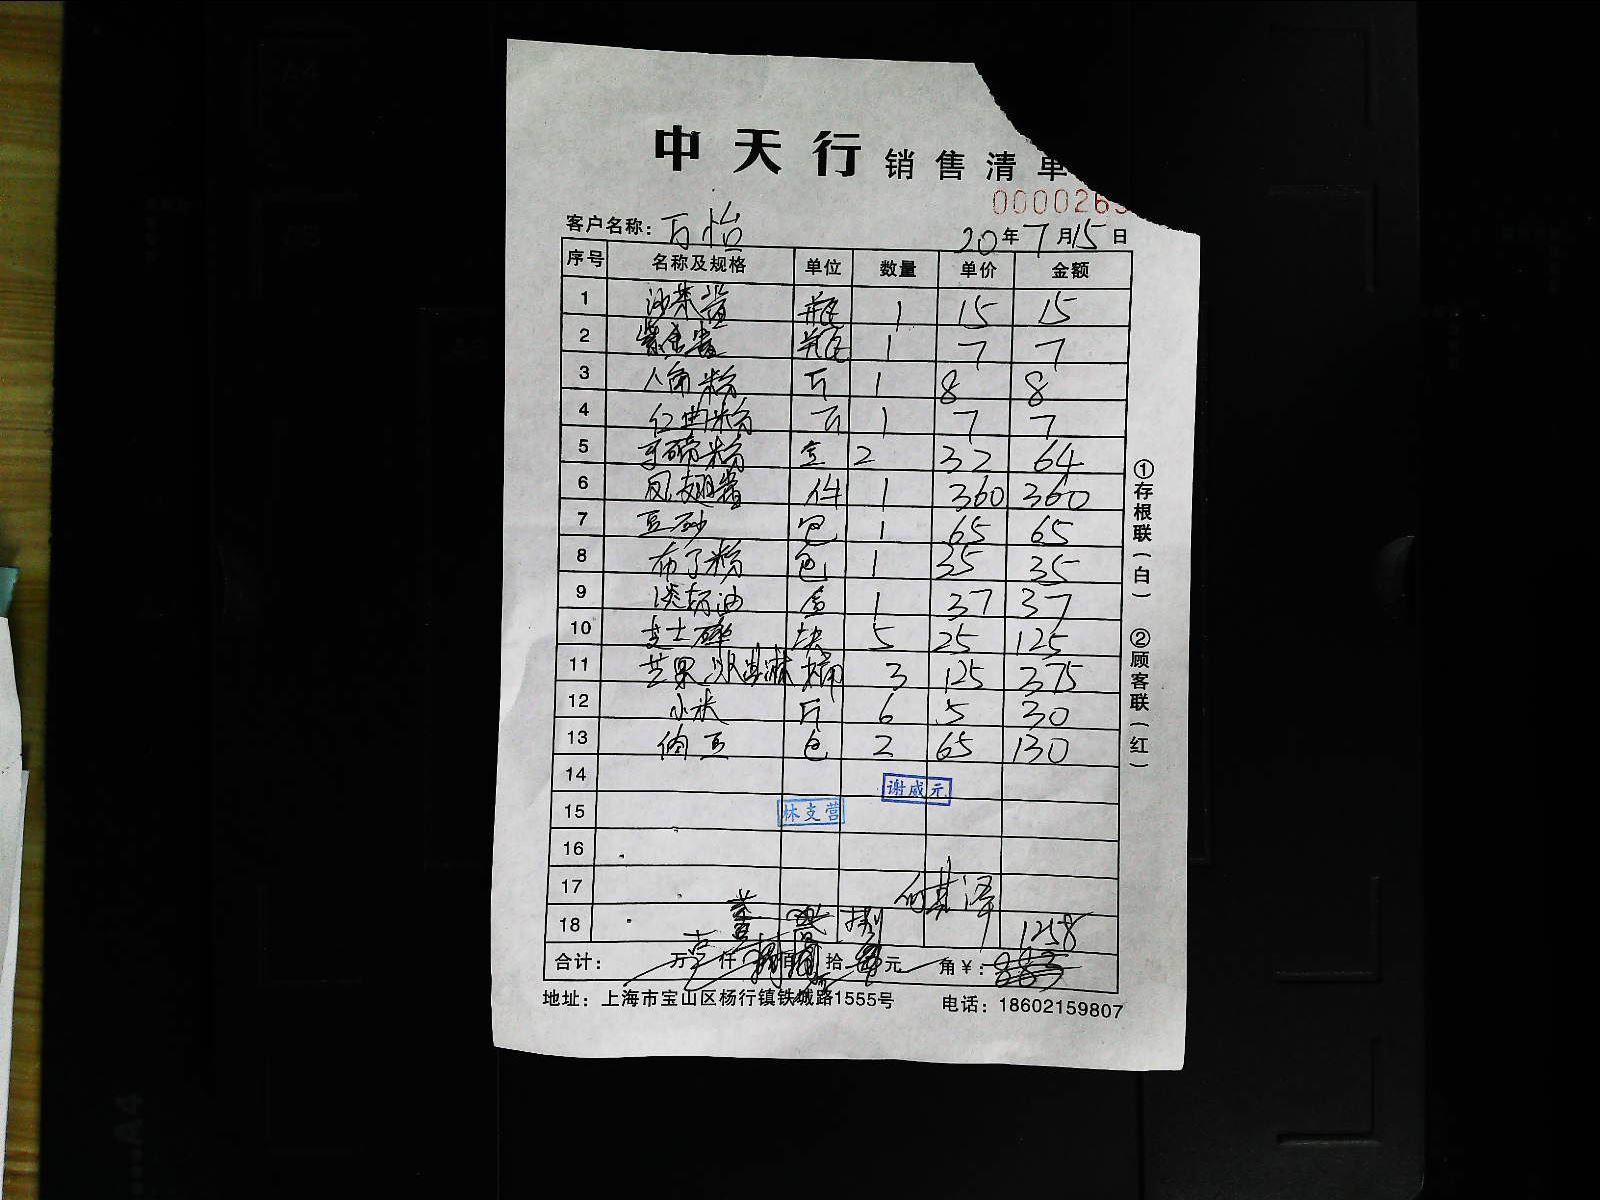 中天行 销售清单
000026
客户名称: 万怡 20年7月15日
序号 名称及规格 单位 数量 单价 金额
1 沙茶酱 瓶 1 15 15
2 紫金酱 瓶 1 7 7
3 八角粉 斤 1 8 8
4 红曲粉 斤 1 7 7
5 粉 盒 2 32 64
6 凤翅酱 件 1 360 360
7 豆砂 包 1 65 65
8 布丁粉 包 1 35 35
9 淡奶油 盒 1 37 37
10 芝士碎 块 5 25 125
11 芒果冰淇淋 桶 3 125 375
12 小米 斤 6 5 30
13 豆 包 2 65 130
14
谢威元
15 林支营
16
17 何其泽
18 捌 1258
合计: 万 仟 佰 拾 元 角 ¥: 883
地址: 上海市宝山区杨行镇铁城路1555号 电话: 18602159807
①存根联(白) ②顾客联(红)